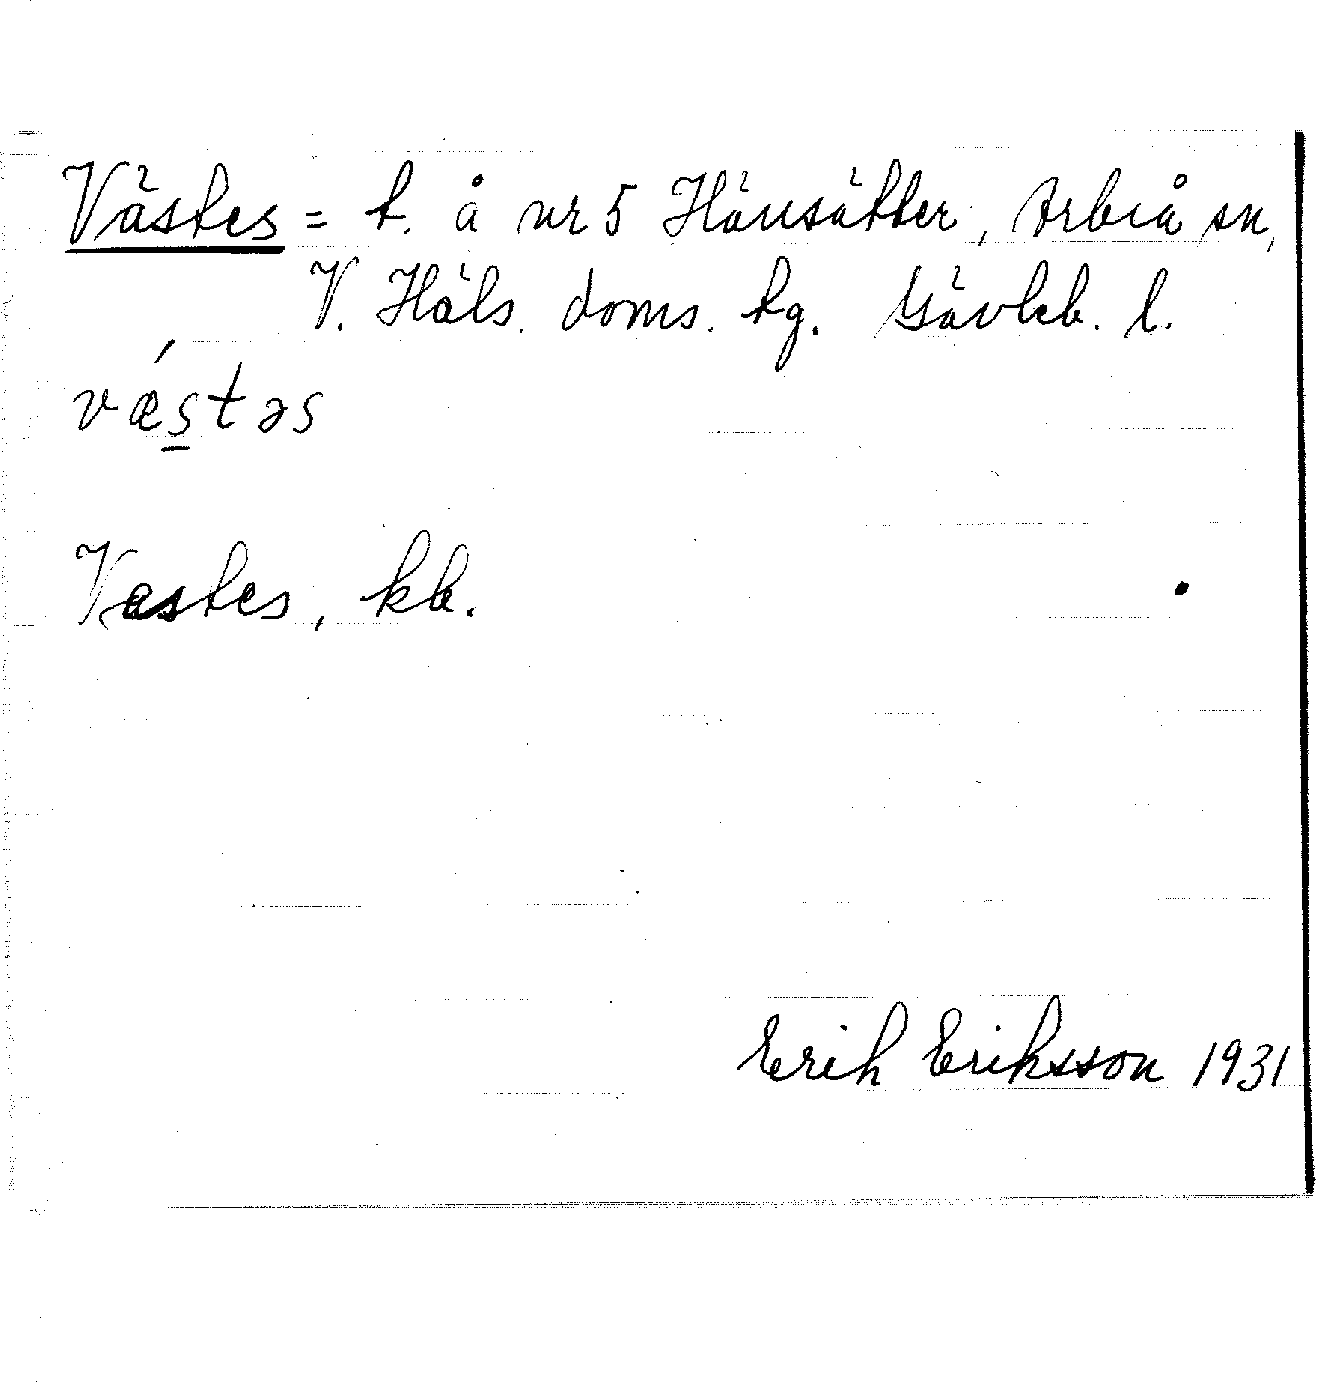 Västes = t. å nr 5 Hänsätter, Arbrå sn,
V. Häls. doms. tg. Gävleb. l.
væ´s̱təs
Vastes, kb.
Erik Eriksson 1931